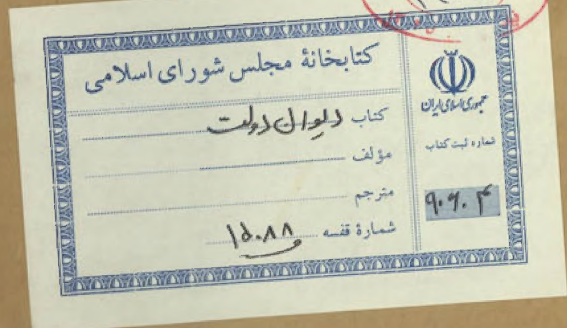 کتابخانهٔ مجلس شورای اسلامی
کتاب دیوان دولت
مؤلف
مترجم
شمارهٔ قفسه ۱۵۰۸۸
جمهوری اسلامی ایران
شماره ثبت کتاب
۹۰۶۰۴